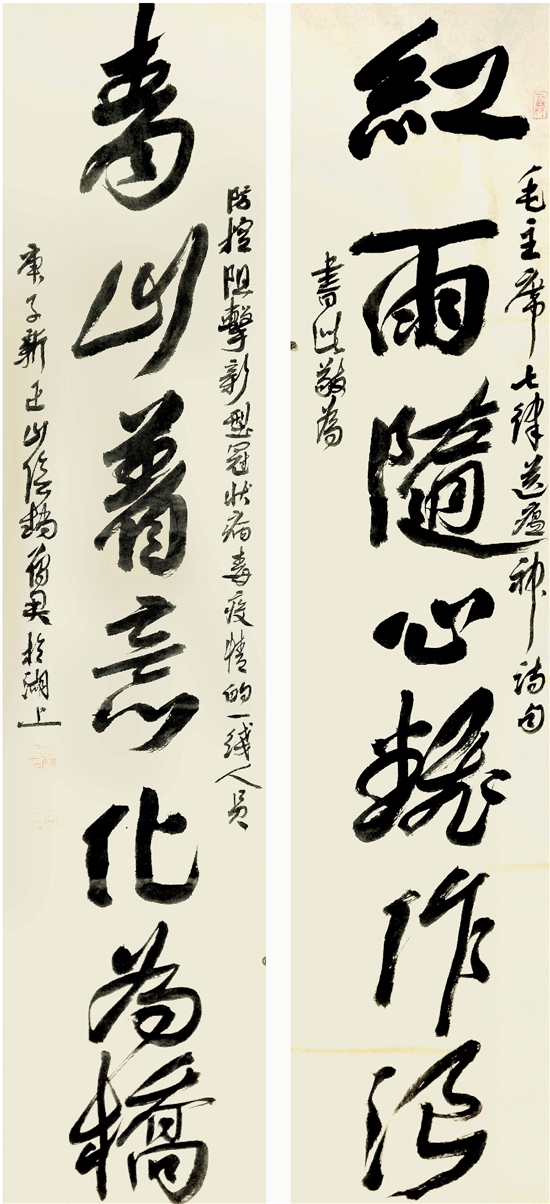 毛主席七律送瘟神詩句
紅雨隨心翻作浪
書此敬為
防控阻擊新型冠狀病毒疫情的一綫人员
青山着意化為橋
庚子新正山陰於湖上